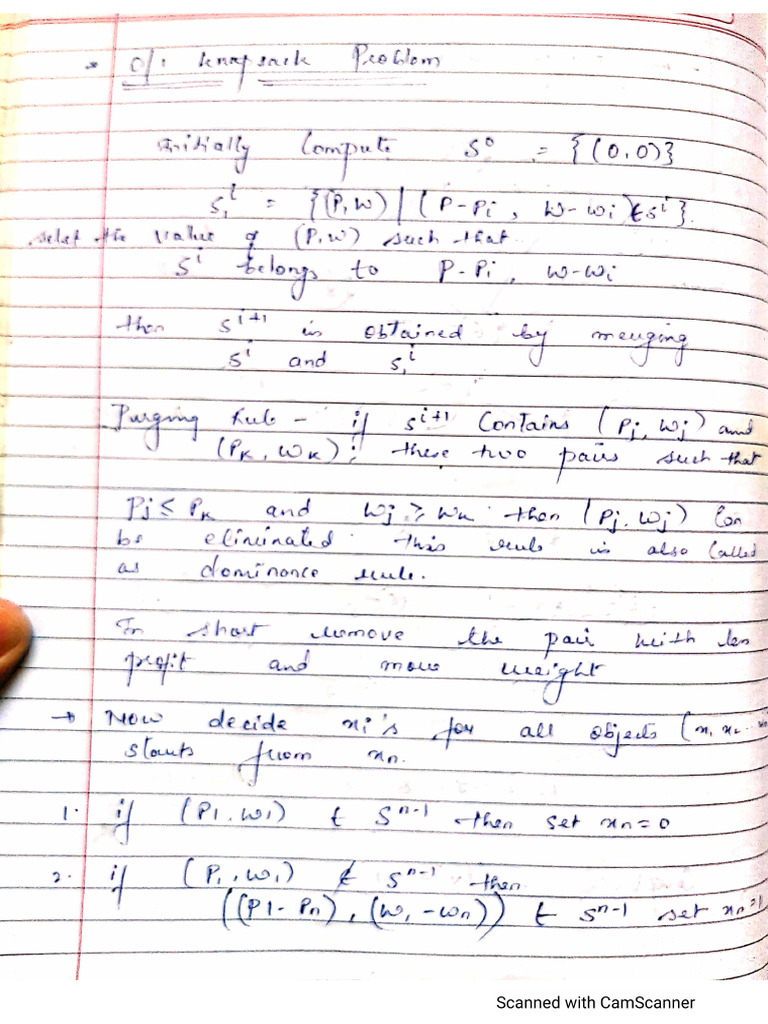 0/1 knapsack Problem
Initially Compute S⁰ = {(0,0)}
S₁ⁱ = {(P,W) | (P-Pi, W-wi) ∈ Sⁱ}.
select the value of (P,W) such that
Sⁱ belongs to P-Pi, W-Wi
then Sⁱ⁺¹ is obtained by merging
Sⁱ and S₁ⁱ
Purging Rule - if Sⁱ⁺¹ Contains (Pj, Wj) and
(PK, WK); these two pairs such that
Pj ≤ PK and Wj ≥ WK then (Pj, Wj) Can
be eliminated this rule is also Called
as dominance rule.
In short remove the pair with les
profit and more weight
→ Now decide xi's for all objects (x, x₂
starts from xn.
1. if (P1, W1) ∈ Sⁿ⁻¹ then set xn = 0
2. if (P1, W1) ∉ Sⁿ⁻¹ then
((P1 - Pn), (W1 - Wn)) ∈ Sⁿ⁻¹ set xn = 1
Scanned with CamScanner